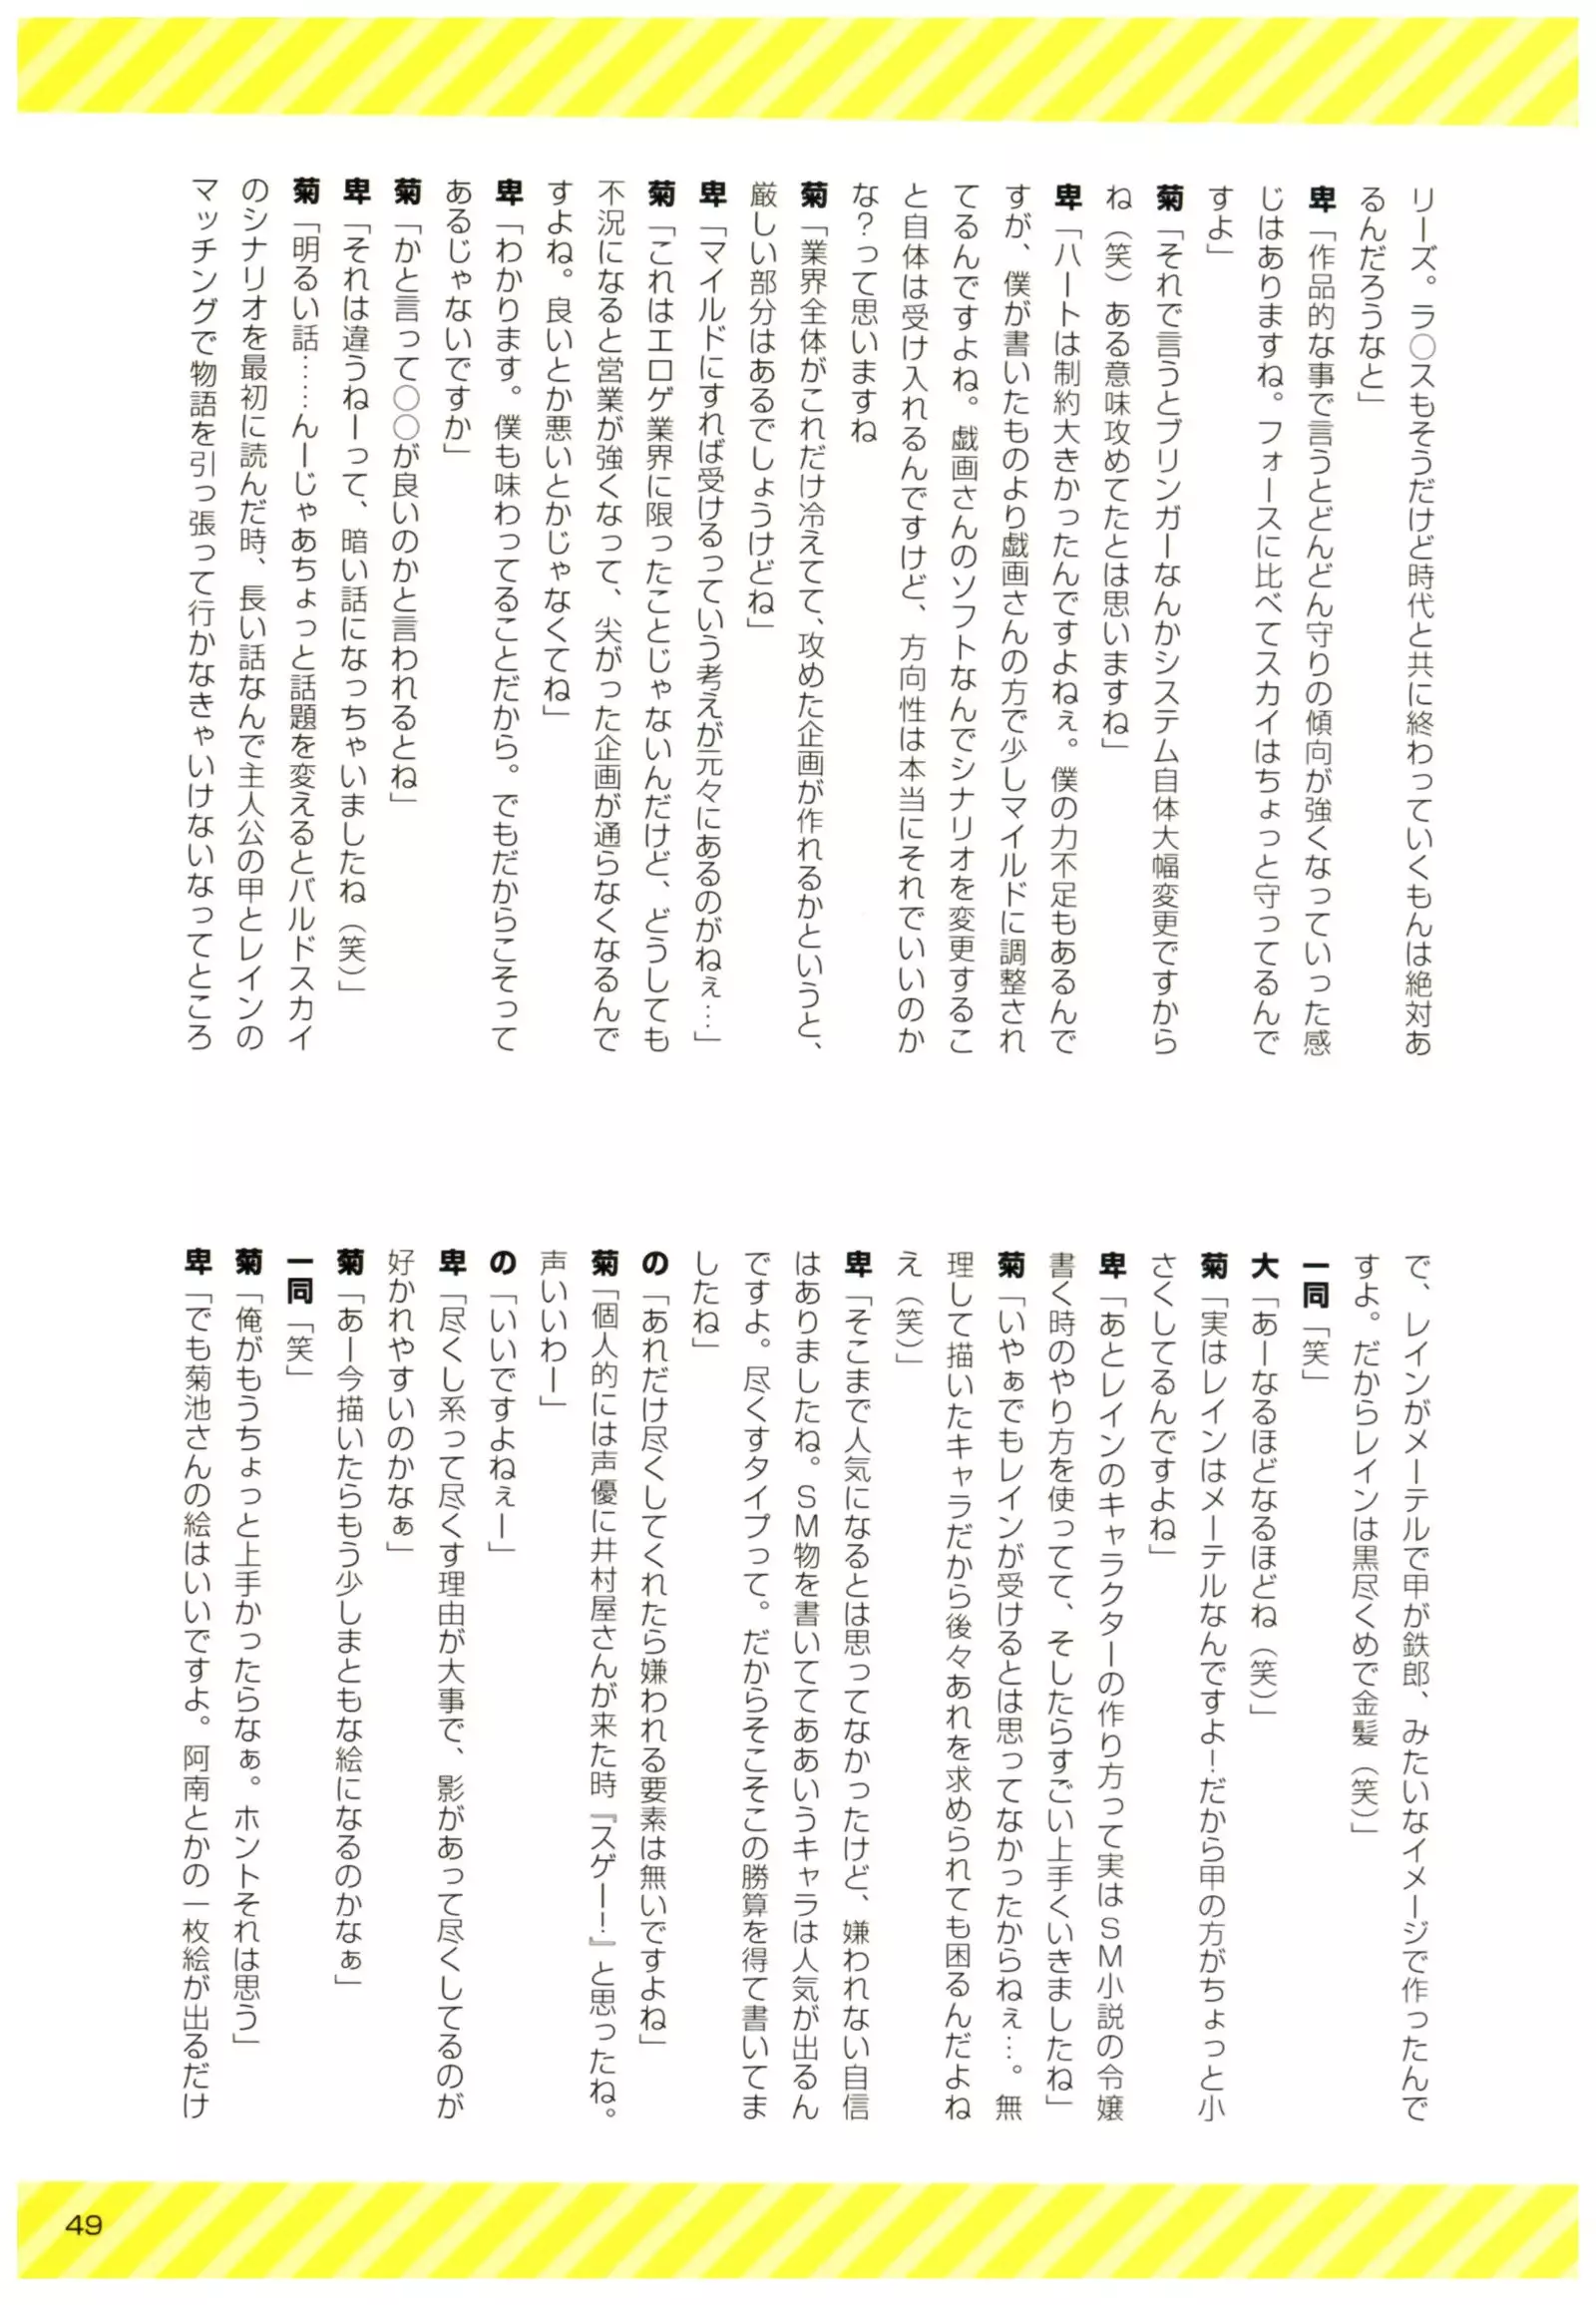 リーズ。ラ○スもそうだけど時代と共に終わっていくもんは絶対あ
るんだろうなと」
卑「作品的な事で言うとどんどん守りの傾向が強くなっていった感
じはありますね。フォースに比べてスカイはちょっと守ってるんで
すよ」
菊「それで言うとブリンガーなんかシステム自体大幅変更ですから
ね（笑）ある意味攻めてたとは思いますね」
卑「ハートは制約大きかったんですよねぇ。僕の力不足もあるんで
すが、僕が書いたものより戯画さんの方で少しマイルドに調整され
てるんですよね。戯画さんのソフトなんでシナリオを変更するこ
と自体は受け入れるんですけど、方向性は本当にそれでいいのか
な？って思いますね
菊「業界全体がこれだけ冷えてて、攻めた企画が作れるかというと、
厳しい部分はあるでしょうけどね」
卑「マイルドにすれば受けるっていう考えが元々にあるのがねぇ…」
菊「これはエロゲ業界に限ったことじゃないんだけど、どうしても
不況になると営業が強くなって、尖がった企画が通らなくなるんで
すよね。良いとか悪いとかじゃなくてね」
卑「わかります。僕も味わってることだから。でもだからこそって
あるじゃないですか」
菊「かと言って○○が良いのかと言われるとね」
卑「それは違うねーって、暗い話になっちゃいましたね（笑）」
菊「明るい話……んーじゃあちょっと話題を変えるとバルドスカイ
のシナリオを最初に読んだ時、長い話なんで主人公の甲とレインの
マッチングで物語を引っ張って行かなきゃいけないなってところ
で、レインがメーテルで甲が鉄郎、みたいなイメージで作ったんで
すよ。だからレインは黒尽くめで金髪（笑）」
一同「笑」
大「あーなるほどなるほどね（笑）」
菊「実はレインはメーテルなんですよ！だから甲の方がちょっと小
さくしてるんですよね」
卑「あとレインのキャラクターの作り方って実はＳＭ小説の令嬢
書く時のやり方を使ってて、そしたらすごい上手くいきましたね」
菊「いやぁでもレインが受けるとは思ってなかったからねぇ…。無
理して描いたキャラだから後々あれを求められても困るんだよね
え（笑）」
卑「そこまで人気になるとは思ってなかったけど、嫌われない自信
はありましたね。ＳＭ物を書いててああいうキャラは人気が出るん
ですよ。尽くすタイプって。だからそこそこの勝算を得て書いてま
したね」
の「あれだけ尽くしてくれたら嫌われる要素は無いですよね」
菊「個人的には声優に井村屋さんが来た時『スゲー！』と思ったね。
声いいわー」
の「いいですよねぇー」
卑「尽くし系って尽くす理由が大事で、影があって尽くしてるのが
好かれやすいのかなぁ」
菊「あー今描いたらもう少しまともな絵になるのかなぁ」
一同「笑」
菊「俺がもうちょっと上手かったらなぁ。ホントそれは思う」
卑「でも菊池さんの絵はいいですよ。阿南とかの一枚絵が出るだけ
49